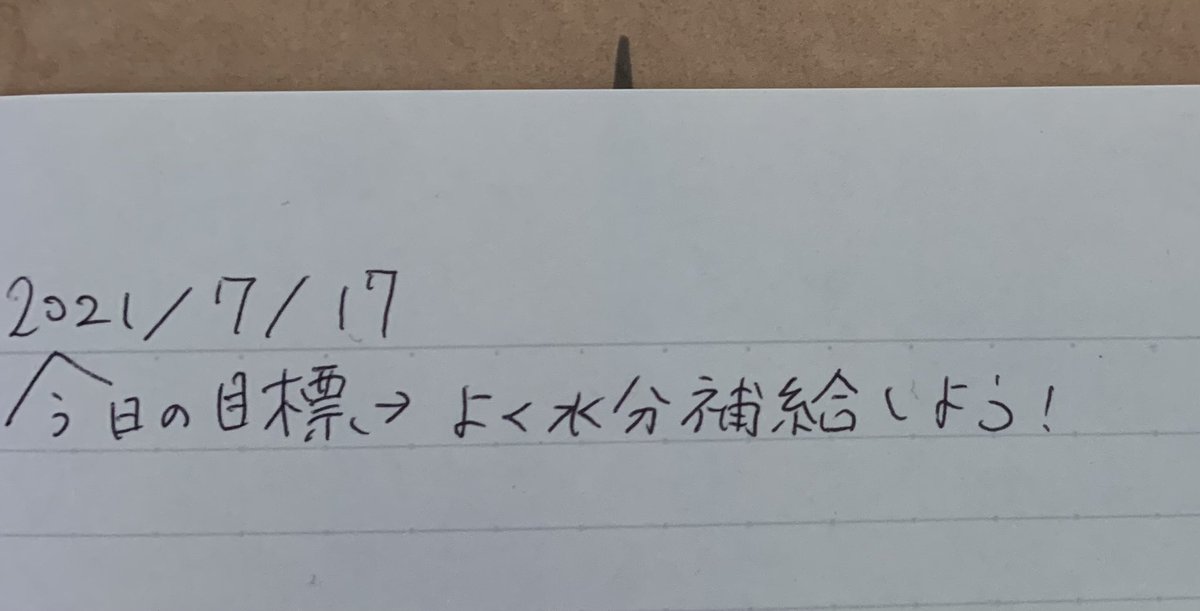 2021/7/17
今日の目標→よく水分補給しよう!